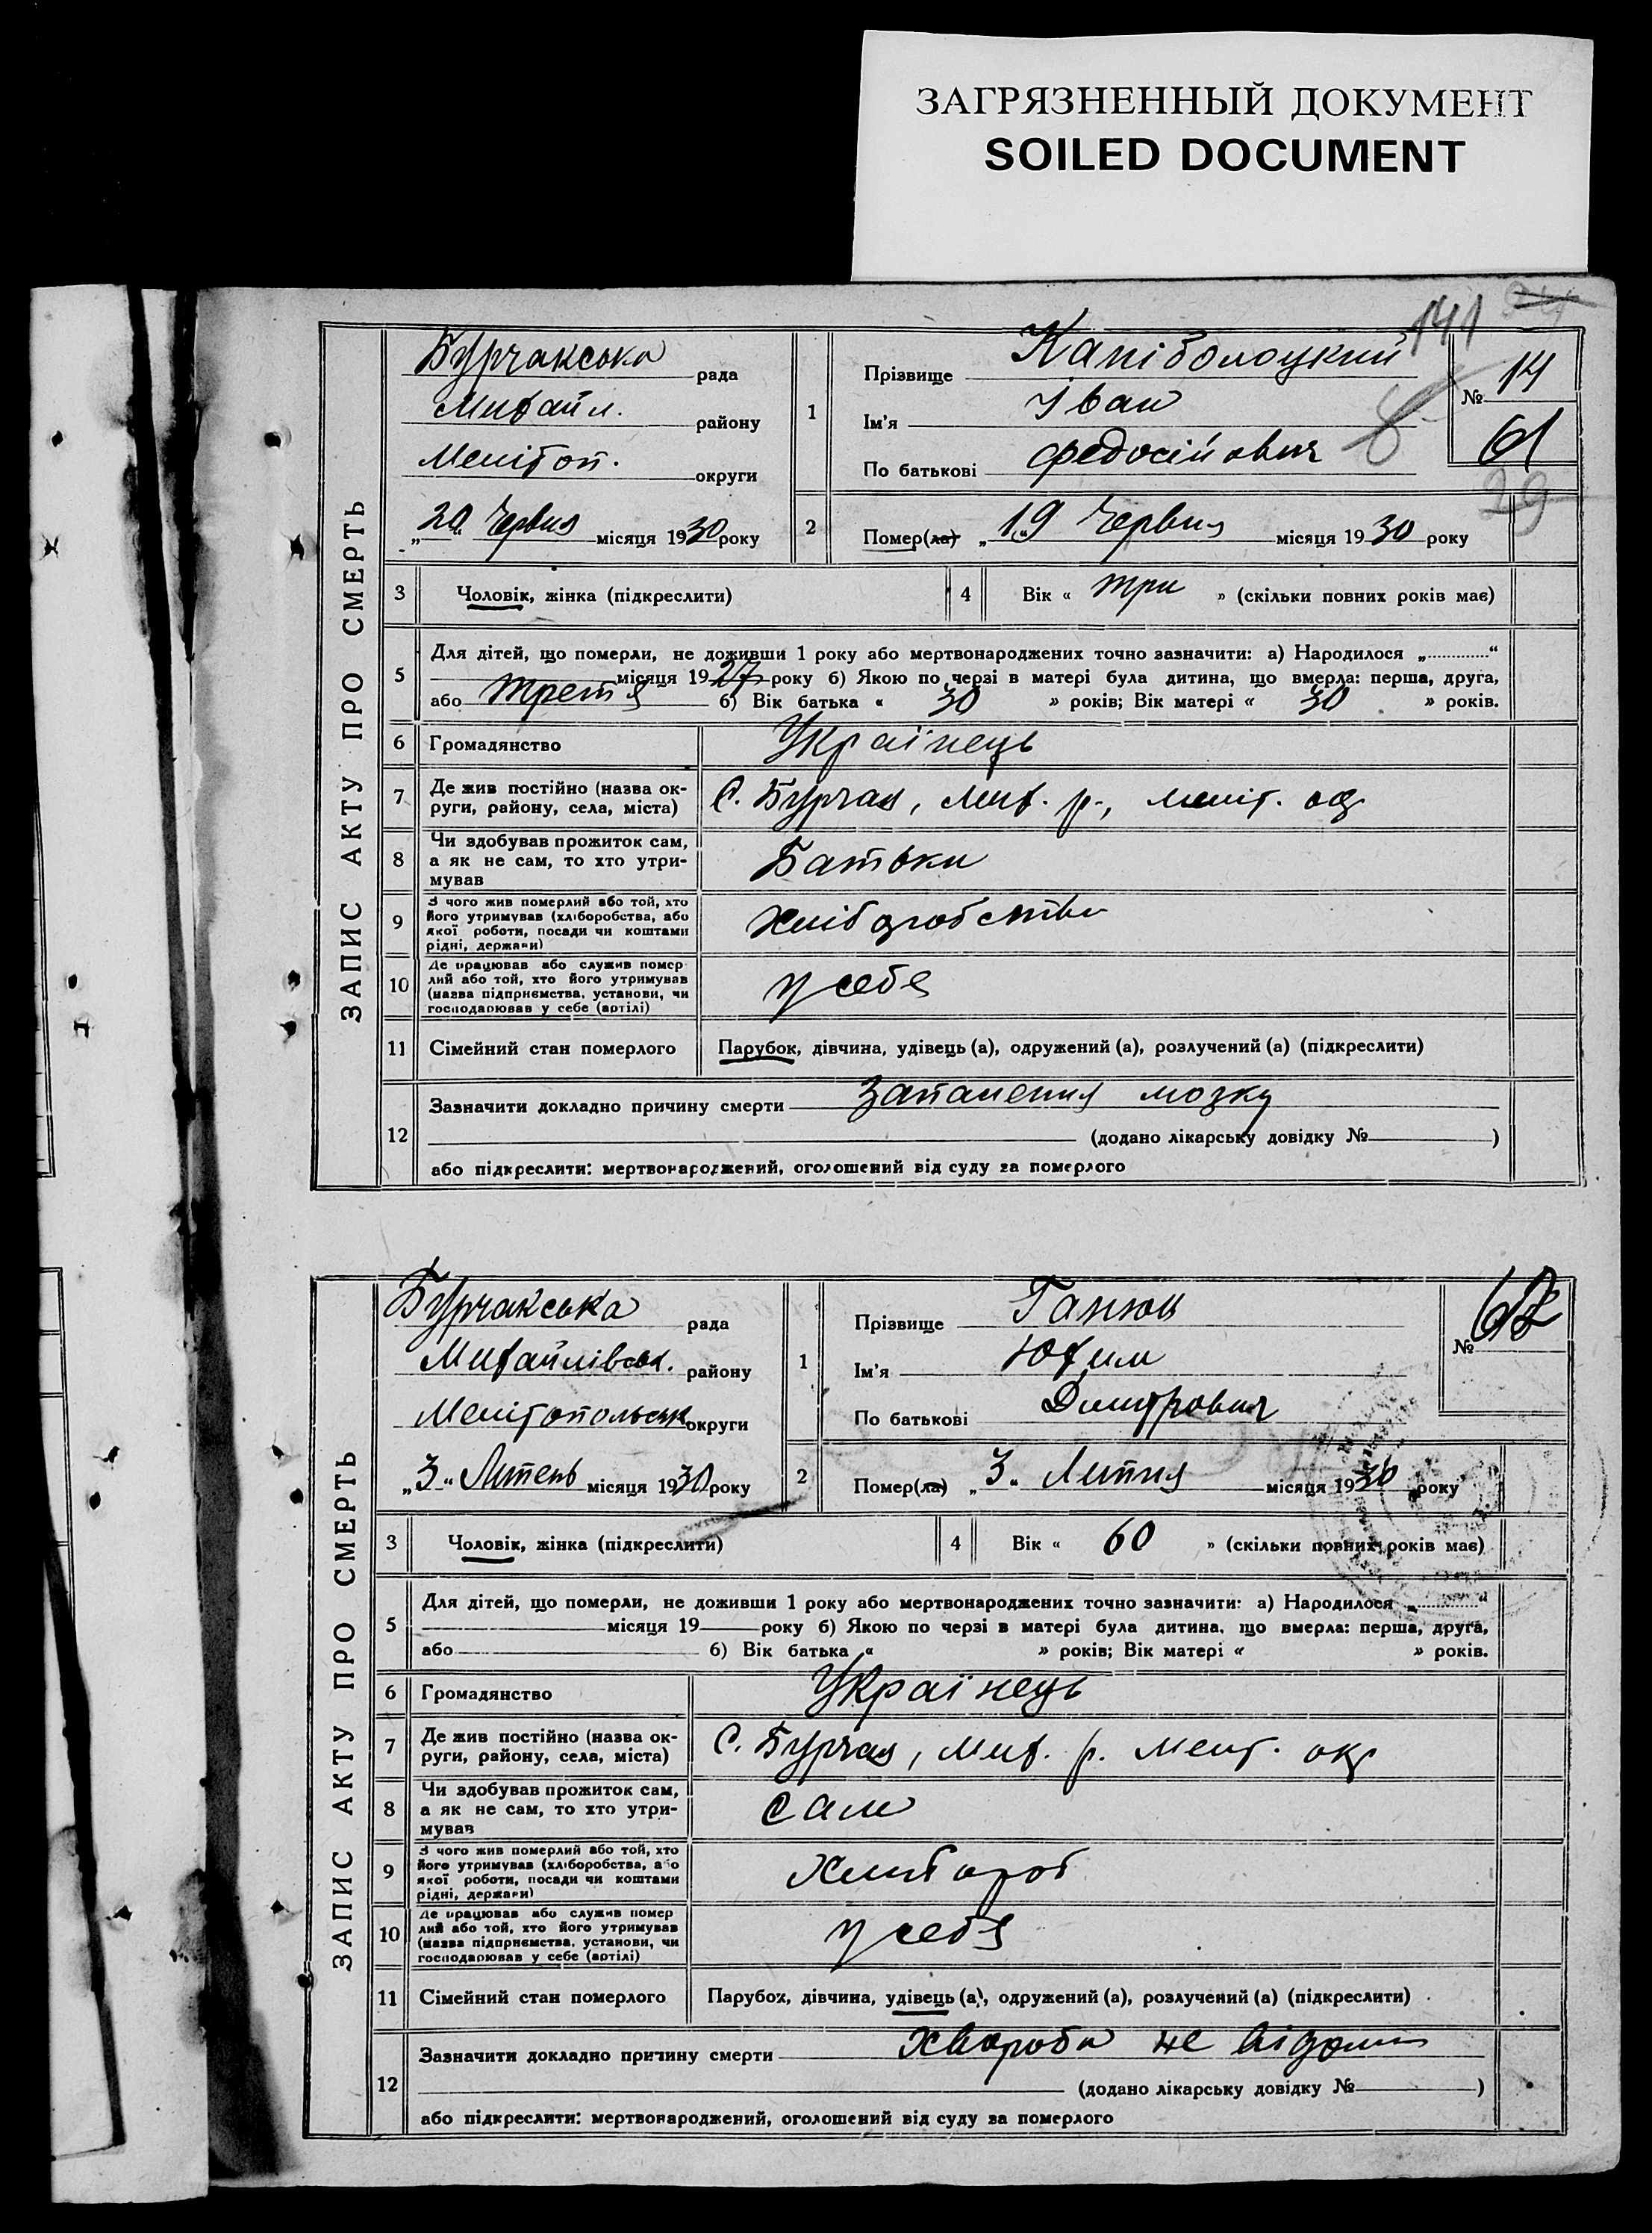 ЗАГРЯЗНЕННЫЙ ДОКУМЕНТ
SOILED DOCUMENT
141
ЗАПИС АКТУ ПРО СМЕРТЬ
Бурчакська рада
Михайл. району
Мелітоп. округи
„20“ Червня місяця 1930 року
1
Прізвище Капіболоцкий
Ім'я Іван
По батькові Федосійович
№ 14
61
29
2
Помер(ла) „19“ Червня місяця 1930 року
3 Чоловік, жінка (підкреслити)
4 Вік « три » (скільки повних років має)
5 Для дітей, що померли, не доживши 1 року або мертвонароджених точно зазначити: а) Народилося „ “
місяця 1927 року б) Якою по черзі в матері була дитина, що вмерла: перша, друга,
або третя б) Вік батька « 30 » років; Вік матері « 30 » років.
6 Громадянство Українець
7 Де жив постійно (назва округи, району, села, міста) С. Бурчак, Мих. р., меліт. окр
8 Чи здобував прожиток сам, а як не сам, то хто утримував Батьки
9 З чого жив померлий або той, хто його утримував (хліборобства, або якої роботи, посади чи коштами рідні, держави) Хліборобство
10 Де працював або служив померлий або той, хто його утримував (назва підприємства, установи, чи господарював у себе (артілі) у себя
11 Сімейний стан померлого Парубок, дівчина, удівець (а), одружений (а), розлучений (а) (підкреслити)
12 Зазначити докладно причину смерти Запалення мозку
(додано лікарську довідку № )
або підкреслити: мертвонароджений, оголошений від суду за померлого
ЗАПИС АКТУ ПРО СМЕРТЬ
Бурчакська рада
Михайлівськ. району
Мелітопольськ округи
„3“ Липень місяця 1930 року
1
Прізвище Ганюк
Ім'я Юхим
По батькові Дмитрович
№ 62
2
Помер(ла) „3“ Липня місяця 1930 року
3 Чоловік, жінка (підкреслити)
4 Вік « 60 » (скільки повних років має)
5 Для дітей, що померли, не доживши 1 року або мертвонароджених точно зазначити: а) Народилося „ “
місяця 19 року б) Якою по черзі в матері була дитина, що вмерла: перша, друга,
або б) Вік батька « » років; Вік матері « » років.
6 Громадянство Українець
7 Де жив постійно (назва округи, району, села, міста) С. Бурчак, Мих. р. Меліт. окр
8 Чи здобував прожиток сам, а як не сам, то хто утримував сам
9 З чого жив померлий або той, хто його утримував (хліборобства, або якої роботи, посади чи коштами рідні, держави) Хлибороб
10 Де працював або служив померлий або той, хто його утримував (назва підприємства, установи, чи господарював у себе (артілі) у себя
11 Сімейний стан померлого Парубок, дівчина, удівець (а), одружений (а), розлучений (а) (підкреслити)
12 Зазначити докладно причину смерти Хвороба не відома
(додано лікарську довідку № )
або підкреслити: мертвонароджений, оголошений від суду за померлого